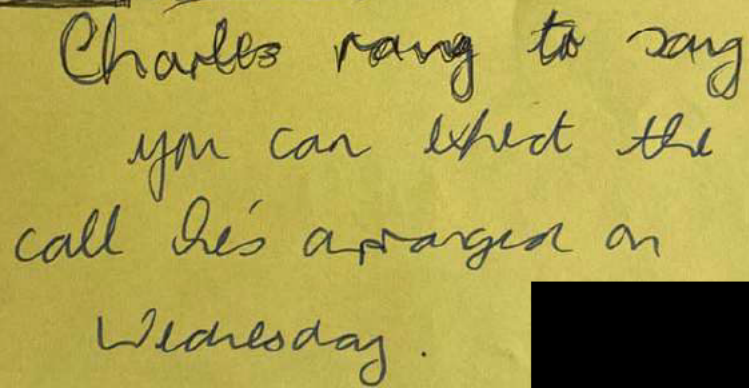 Charles rang to say
you can expect the
call he's arranged on
Wednesday.